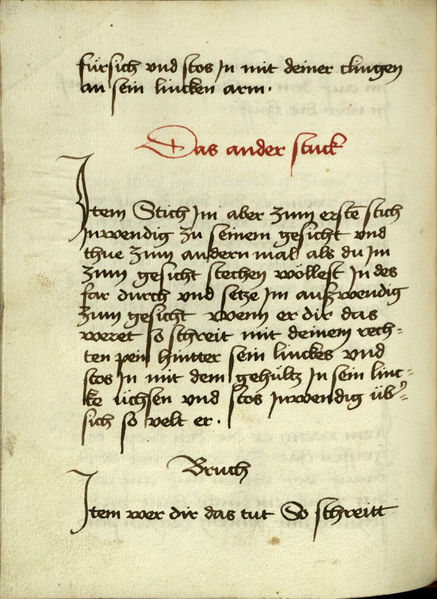 fürsich vnd stos jn mit deiner clingen
an sein lincken arm ·
Das ander stuck
Jtem Stich jm aber zum erste͂ stich
jnwendig zu seinem gesicht vnd
thue zum andern mal als du jm
zum gesicht stechen wöllest jn des
far durch vnd setze jm außwendig
zum gesicht wenn er dir das
weret so schreit mit deinem rech-
ten pein hintter sein linckes vnd
stos jn mit dem gehültz jn sein linc-
ke üchsen vnd stos jnwendig üb᾽
sich so velt er ·
Bruch
Jtem wer dir das tut So schreitt